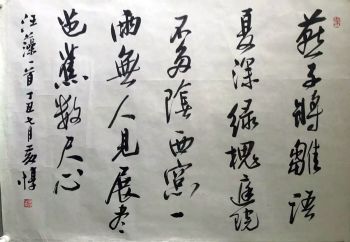 燕子將雛語
夏深緑槐庭院
不多陰西窓一
雨無人見展尽
芭蕉数尺心
汪藻一首丁丑七月